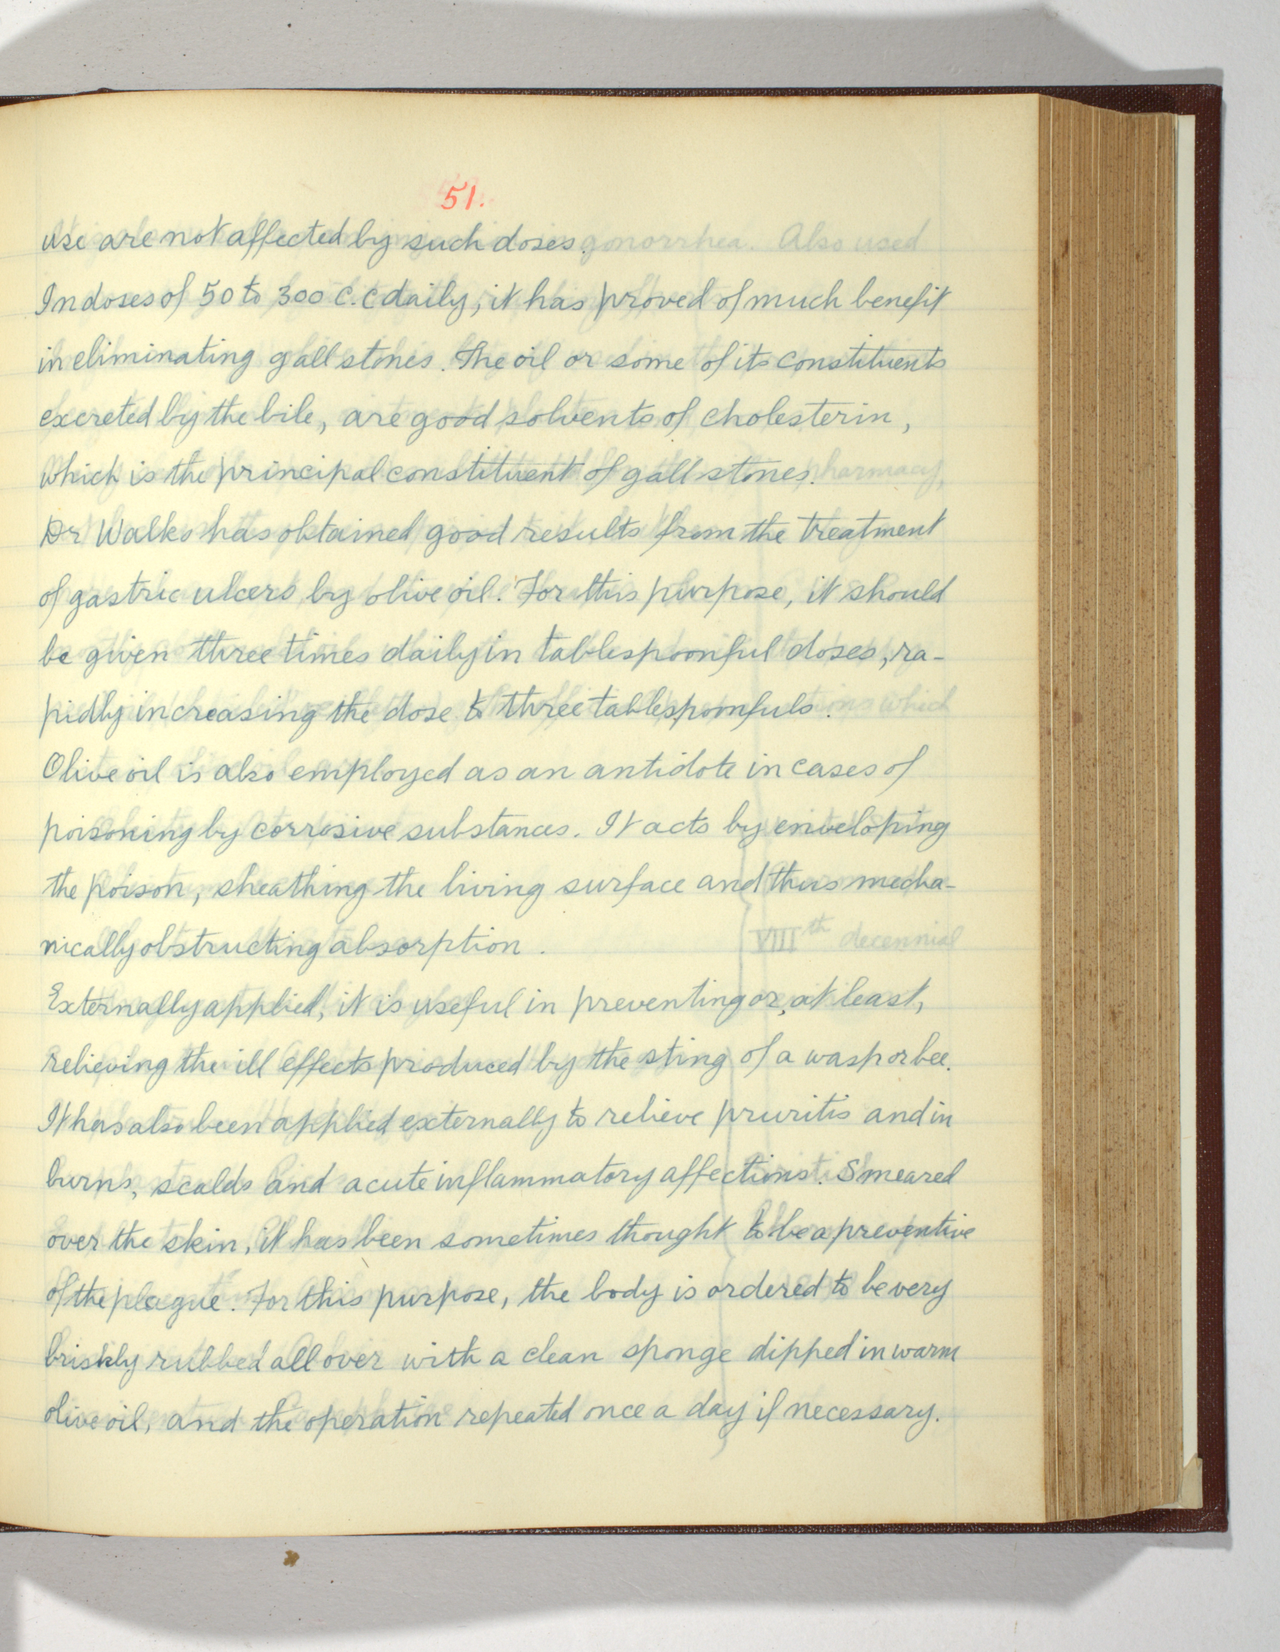 51.
use are not affected by such doses.
In doses of 50 to 300 c.c daily, it has proved of much benefit
in eliminating gall stones. The oil or some of its constituents
excreted by the bile, are good solvents of cholesterin,
which is the principal constituent of gall stones.
Dr Walko has obtained good results from the treatment
of gastric ulcers by olive oil. For this purpose, it should
be given three times daily in tablespoonful doses, ra-
pidly increasing the dose to three tablespoonfuls.
Olive oil is also employed as an antidote in cases of
poisoning by corrosive substances. It acts by enveloping
the poison, sheathing the living surface and thus mecha-
nically obstructing absorption.
Externally applied, it is useful in preventing or, at least,
relieving the ill effects produced by the sting of a wasp or bee.
It has also been applied externally to relieve pruritis and in
burns, scalds and acute inflammatory affections. Smeared
over the skin, it has been sometimes thought to be a preventive
of the plague. For this purpose, the body is ordered to be very
briskly rubbed all over with a clean sponge dipped in warm
olive oil, and the operation repeated once a day if necessary.